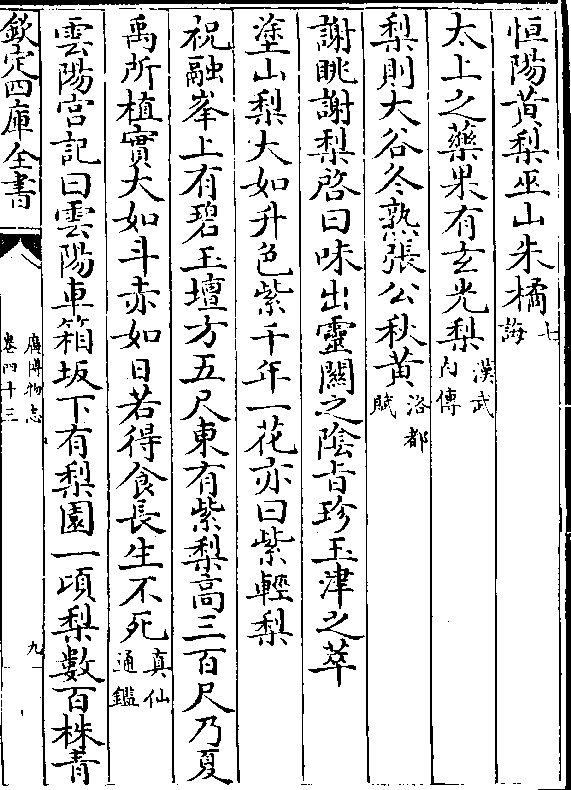 恒陽黄梨巫山朱橘七誨
太上之藥果有玄光梨漢武内傳
梨則大谷冬熟張公秋黄洛都賦
謝朓謝梨啓曰味出靈關之陰旨珍玉津之萃
塗山梨大如升色紫千年一花亦曰紫輕梨
祝融峯上有碧玉壇方五尺東有紫梨高三百尺乃夏
禹所植實大如斗赤如日若得食長生不死真仙通鑑
雲陽宫記曰雲陽車箱坂下有梨園一頃梨數百株青
欽定四庫全書
廣博物志
卷四十三
九